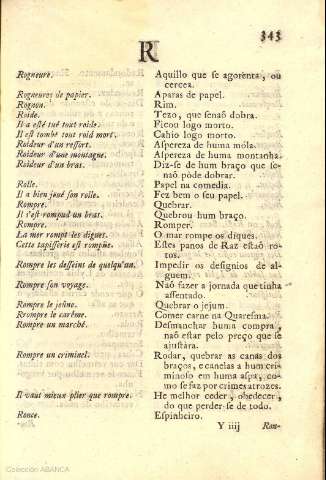 343
R
Rogneure. Aquillo que se agorenta, ou
cercea.
Rogneures de papier. Aparas de papel.
Rognon. Rim.
Roide. Tezo, que senaõ dobra.
Il a esté tué tout raide. Ficou logo morto.
Il est tombé tout roid mort. Cahio logo morto.
Roideur d'un ressort. Aspereza de huma móla.
Roideur d'une montagne. Aspereza de huma montanha.
Roideur d'un bras. Diz-se de hum braço que se-
naõ póde dobrar.
Rolle. Papel na comedia.
Il a bien joué son rolle. Fez bem o seu papel.
Rompre. Quebrar.
Il s'est rompud un brat. Quebrou hum braço.
Rompre. Romper.
La mer rompt les digues. O mar rompe os diques.
Cette tapisserie est rompüe. Estes panos de Raz estaõ ro-
tos.
Rompre les desseins de quelqu'un. Impedir os designios de al-
guem.
Rompre son voyage. Naõ fazer a jornada que tinha
assentado.
Rompre le jeûne. Quebrar o jejum.
Rrompre le carême. Comer carne na Quaresma.
Rompre un marché. Desmanchar huma compra,
naõ estar pelo preço que se
ajustára.
Rompre un criminel. Rodar, quebrar as canas dos
braços, e canelas a hum cri-
minoso em huma aspa, co-
mo se faz por crimes atrozes.
Il vaut mieux plier que rompre. He melhor ceder, obedecer,
do que perder-se de todo.
Ronce. Espinheiro.
Y iiij Ron-
Colección ABANCA